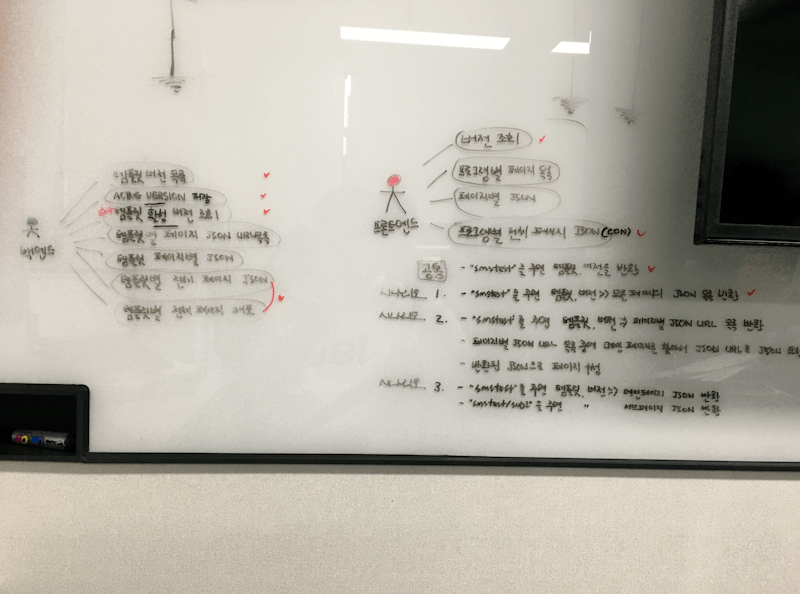 템플릿 버전 목록
ACMS VERSION 저장
템플릿 활성 버전 조회
템플릿 별 페이지 JSON URL목록
템플릿 페이지별 JSON
템플릿별 전체 페이지 JSON
템플릿별 전체 페이지
백엔드
버전 조회
프로그램별 페이지 목록
페이지별 JSON
프로그램별 전체 페이지 JSON (CON)
프론트엔드
공통 - "smstest"를 주면 템플릿, 버전을 반환
시나리오 1. - "smstest"를 주면 템플릿, 버전 => 모든 페이지의 JSON 목록 반환
시나리오 2. - "smstest"를 주면 템플릿, 버전 => 페이지별 JSON URL 목록 반환
- 페이지별 JSON URL 목록 중에 메인 페이지를 찾아서 JSON URL로 JSON
- 반환된 JSON으로 페이지 구성
시나리오 3. - "smstest"를 주면 템플릿, 버전 => 메인페이지 JSON 반환
- "smstest/sub1"을 주면 " 서브페이지 JSON 반환